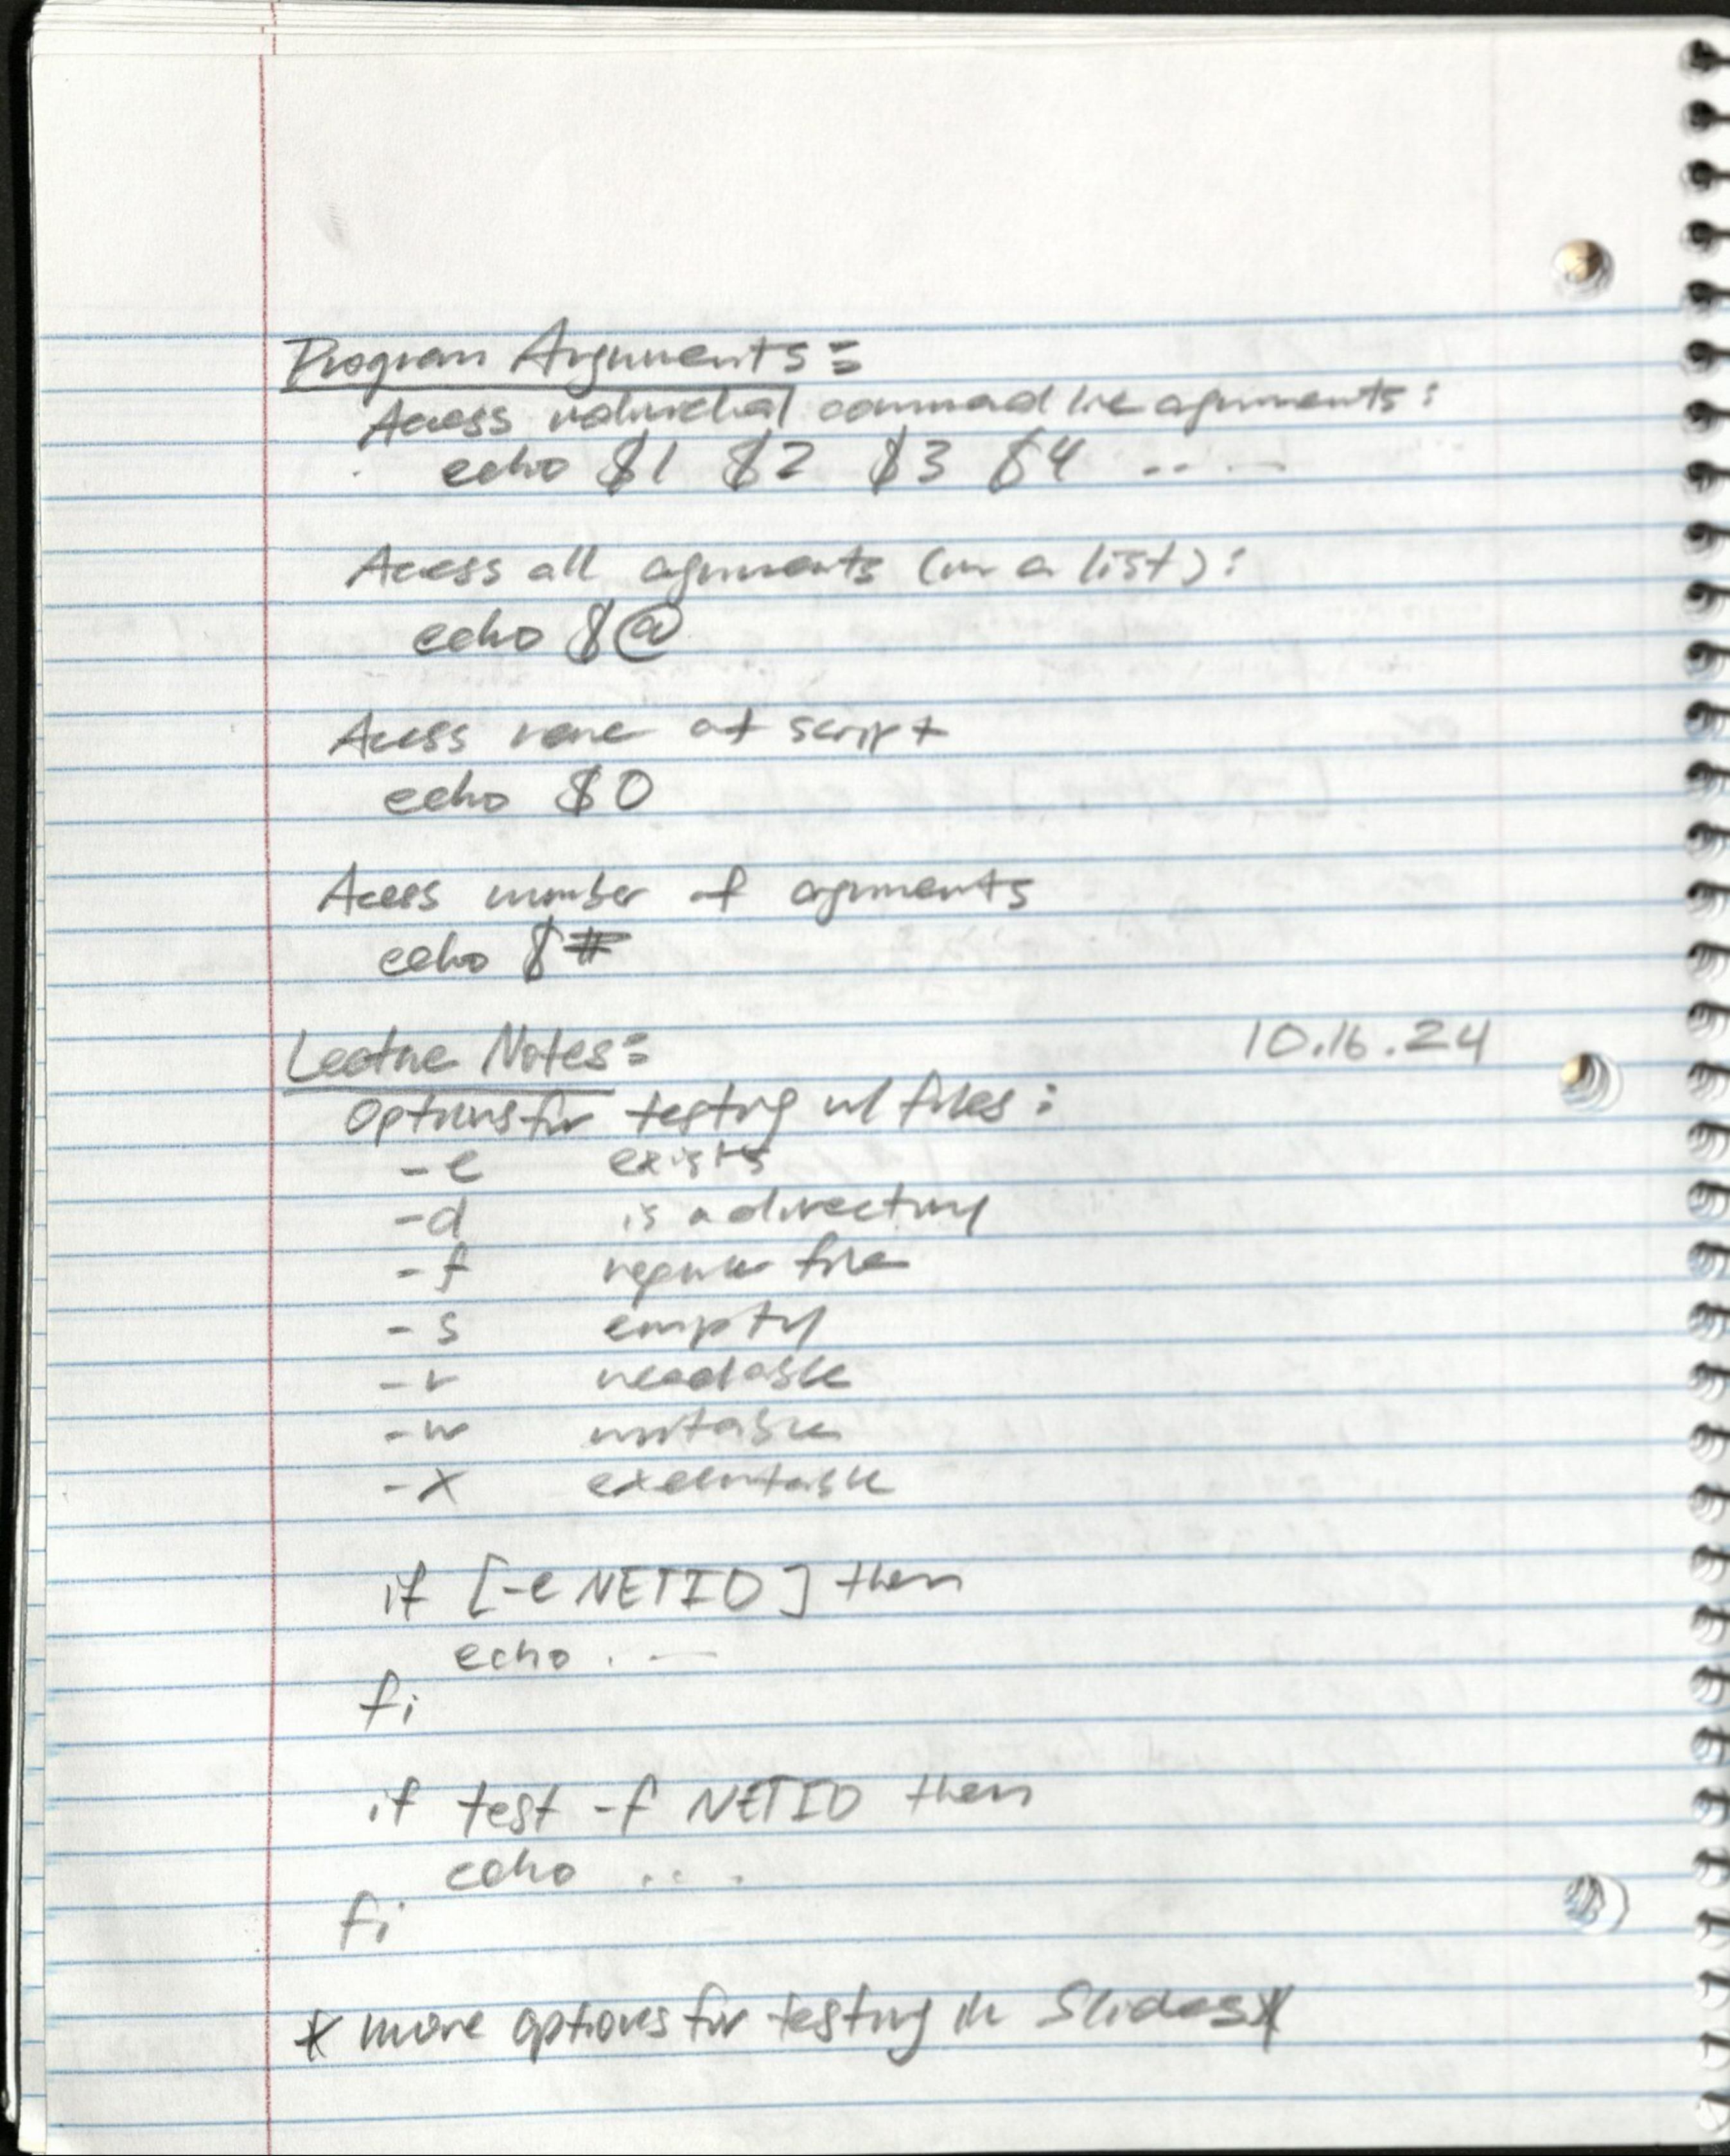 Program Arguments:
Access individual command line arguments:
echo $1 $2 $3 $4 ....
Access all arguments (in a list):
echo $@
Access name of script
echo $0
Access number of arguments
echo $#
Lecture Notes: 10.16.24
Options for testing w/ files:
-e exists
-d is a directory
-f regular file
-s empty
-r readable
-w writable
-x executable
if [-e NETID] then
echo ...
fi
if test -f NETID then
echo ...
fi
* more options for testing in Slides *